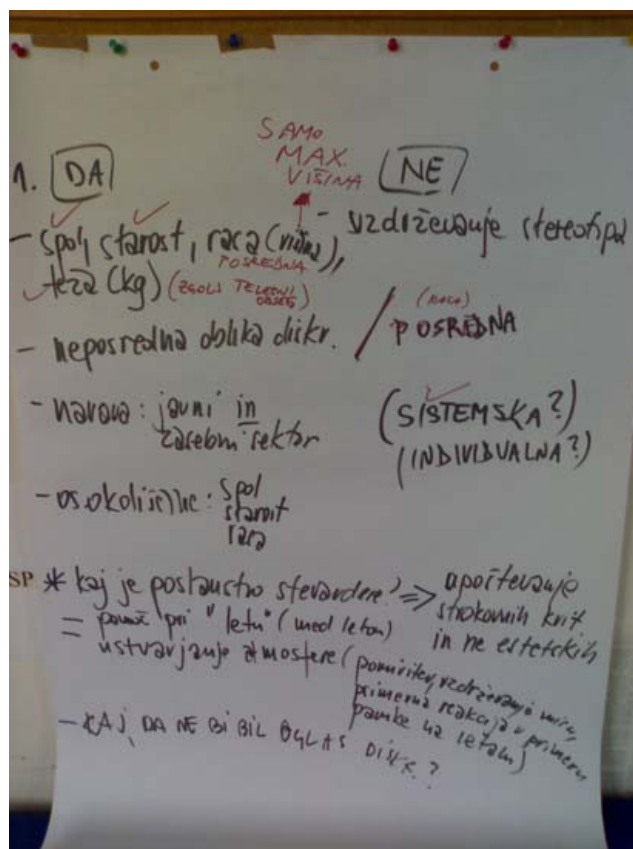 SAMO
MAX.
VIŠINA
1. DA
NE
- spol, starost, rasa (višina),
POSREDNA
teža (kg) (ZGOLJ TELESNI OBSEG)
- vzdrževanje stereotipa
- neposredna oblika diskr. / POSREDNA
(rasa)
- narava: javni in
zasebni sektor
(SISTEMSKA?)
(INDIVIDUALNA?)
- os. okoliščine: spol
starost
rasa
SP * kaj je poslanstvo stevardese? => upoštevanje
strokovnih krit.
in ne estetskih
= pomoč pri "letu" (med letom)
ustvarjanje atmosfere (pomiritev, vzdrževanje miru,
primerna reakcija v primeru
panike na letalu)
- KAJ, DA NE BI BIL OGLAS DISKR.?